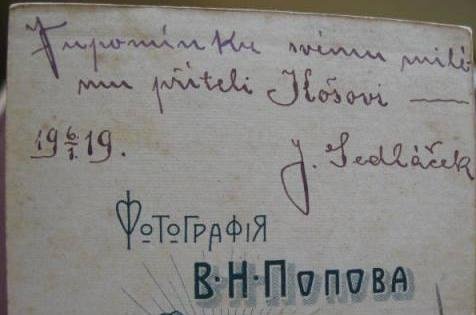 Vupomínku svému milé
mu příteli Kóšovi —
19 6/1. 19.
J. Sedláček
Фотографія
В·Н·Попова